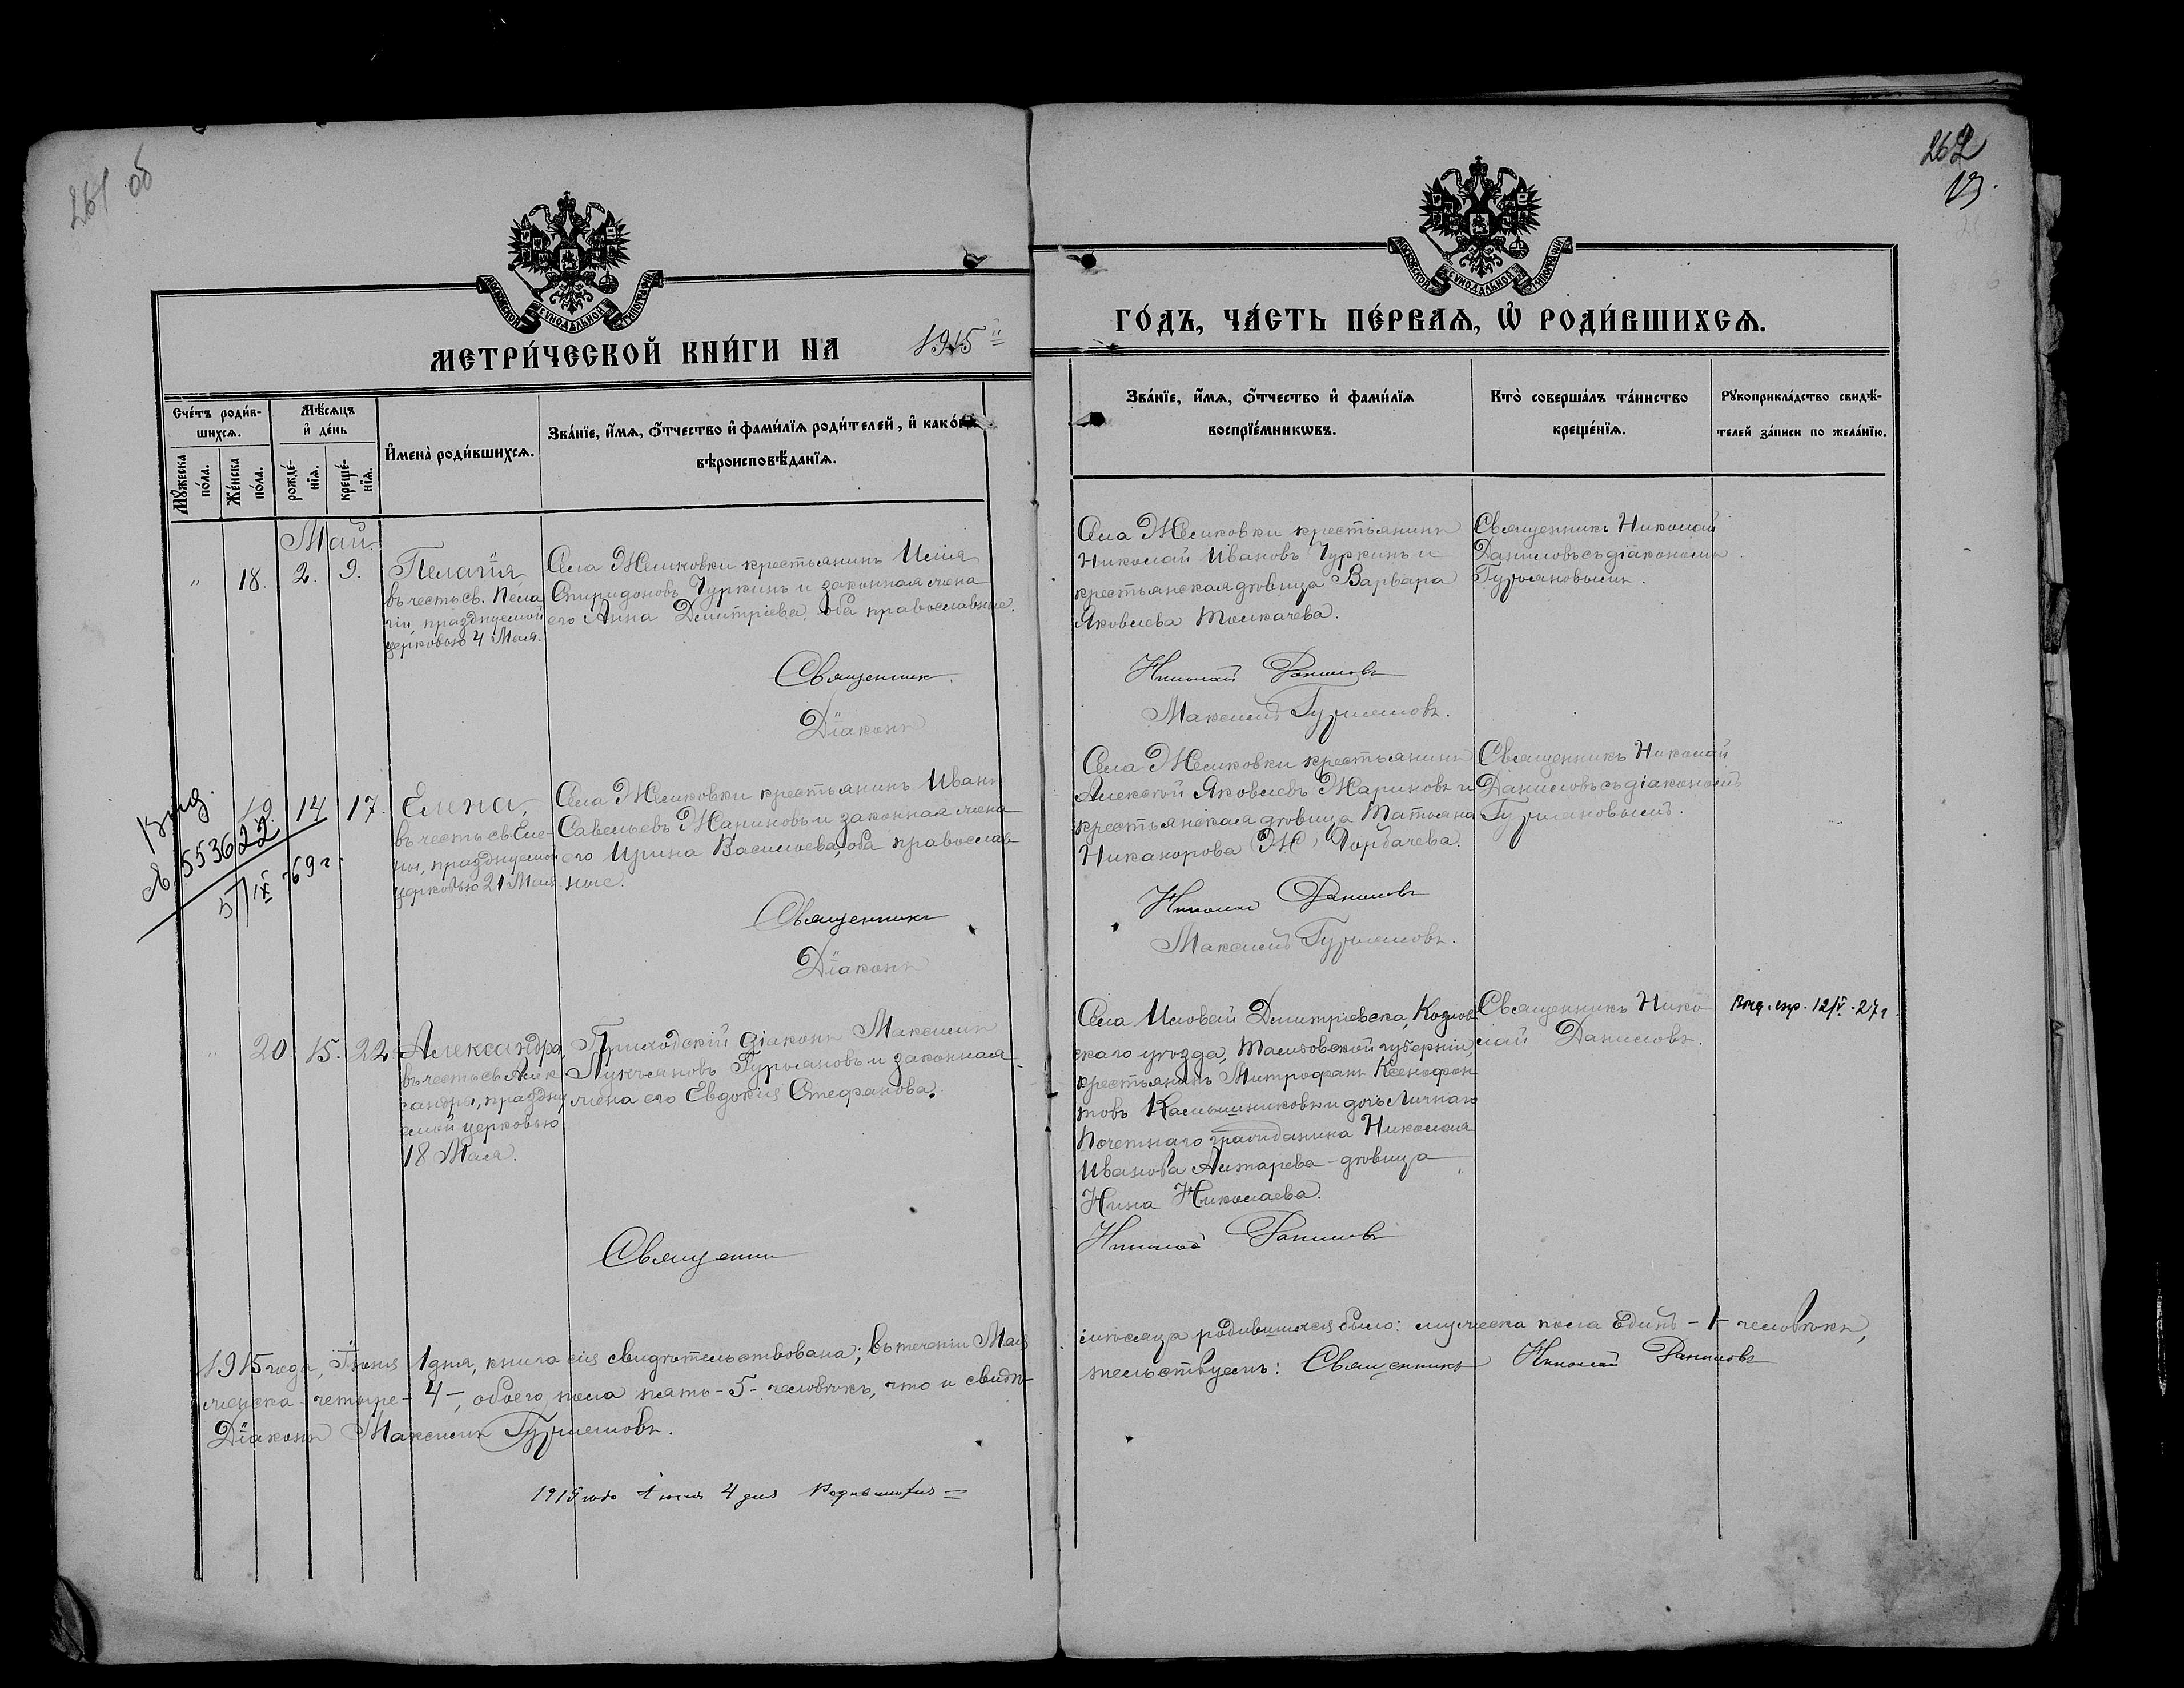 261 об
262
13.
МОСКОВСКОЙ СѴНОДАЛЬНОЙ ТИПОГРАФІИ
МОСКОВСКОЙ СѴНОДАЛЬНОЙ ТИПОГРАФІИ
МЕТРИ́ЧЕСКОЙ КНИ́ГИ НА 1915й
ГО́ДЪ, ЧА́СТЬ ПЕ́РВАѦ, Ѡ҆ РОДИ́ВШИХСѦ.
Сче́тъ роди́в-
шихсѧ.
Мꙋ́жеска
по́ла.
Же́нска
по́ла.
Мѣ́сѧцъ
и҆ де́нь
рожде́-
нїѧ.
креще́-
нїѧ.
И҆мена̀ роди́вшихсѧ.
Зва́нїе, и҆́мѧ, ѻ҆́тчество и҆ фами́лїѧ роди́телей, и҆ како́гѡ
вѣроисповѣ́данїѧ.
Зва́нїе, и҆́мѧ, ѻ҆́тчество и҆ фами́лїѧ
воспрїе́мникѡвъ.
Кто̀ соверша́лъ та́инство
креще́нїѧ.
Рꙋкоприкла́дство свидѣ́-
телей за́писи по жела́нїю.
Май.
" 18. 2. 9.
Пелагія
въ честь св. Пела
гіи, празднуемой
церковью 4 Мая.
Села Жемковки крестьянинъ Илія
Спиридоновъ Чуркинъ и законная жена
его Анна Димитріева, оба православные.
Священник
Діаконъ
Села Жемковки крестьянинъ
Николай Ивановъ Чуркинъ и
крестьянская дѣвица Варвара
Яковлева Толкачева.
Николай Даниловъ
Максимъ Гурьяновъ.
Священникъ Николай
Даниловъ съ діакономъ
Гурьяновымъ.
Выд.
№ 553622
5/IX 69 г.
19. 14 17.
Елена,
въ честь св. Еле-
ны, празднуемой
церковью 21 Мая
Села Жемковки крестьянинъ Иванъ
Савельевъ Жариновъ и законная жена
его Ирина Васильева, оба православ-
ные.
Священникъ
Діаконъ
Села Жемковки крестьянинъ
Алексѣй Яковлевъ Жариновъ и
крестьянская дѣвица Татьяна
Никанорова Горбачева.
Николай Даниловъ
Максимъ Гурьяновъ.
Священникъ Николай
Даниловъ съ діакономъ
Гурьяновымъ.
" 20. 15. 22.
Александра,
въ честь св. Алек
сандры, праздну
емой церковью
18 Мая.
Приходскій діаконъ Максимъ
Лукьяновъ Гурьяновъ и законная
жена его Евдокія Стефанова.
Священник
Села Иловай Димитріевска, Козлов
скаго уѣзда, Тамбовской губерніи,
крестьянинъ Митрофанъ Ксенофон
товъ Калмышниковъ и дочь личнаго
почетнаго гражданина Николая
Иванова Алтарева - дѣвица
Нина Николаева.
Николай Даниловъ
Священникъ Нико
лай Даниловъ.
Выд. спр. 12/V - 27 г.
1915 года, Іюня 1 дня, книга сія свидѣтельствована; въ теченіи Мая
мѣсяца родившихся было: мужеска пола единъ - 1 - человѣкъ,
женска - четыре - 4 -, обоего пола пять - 5 - человѣкъ, что и свидѣ-
тельствуемъ: Священникъ Николай Даниловъ
Діаконъ Максимъ Гурьяновъ.
1915 годо Июня 4 дня Родившихъ =